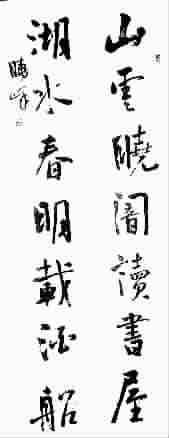 山雲曉闇讀書屋
湖水春明載酒船